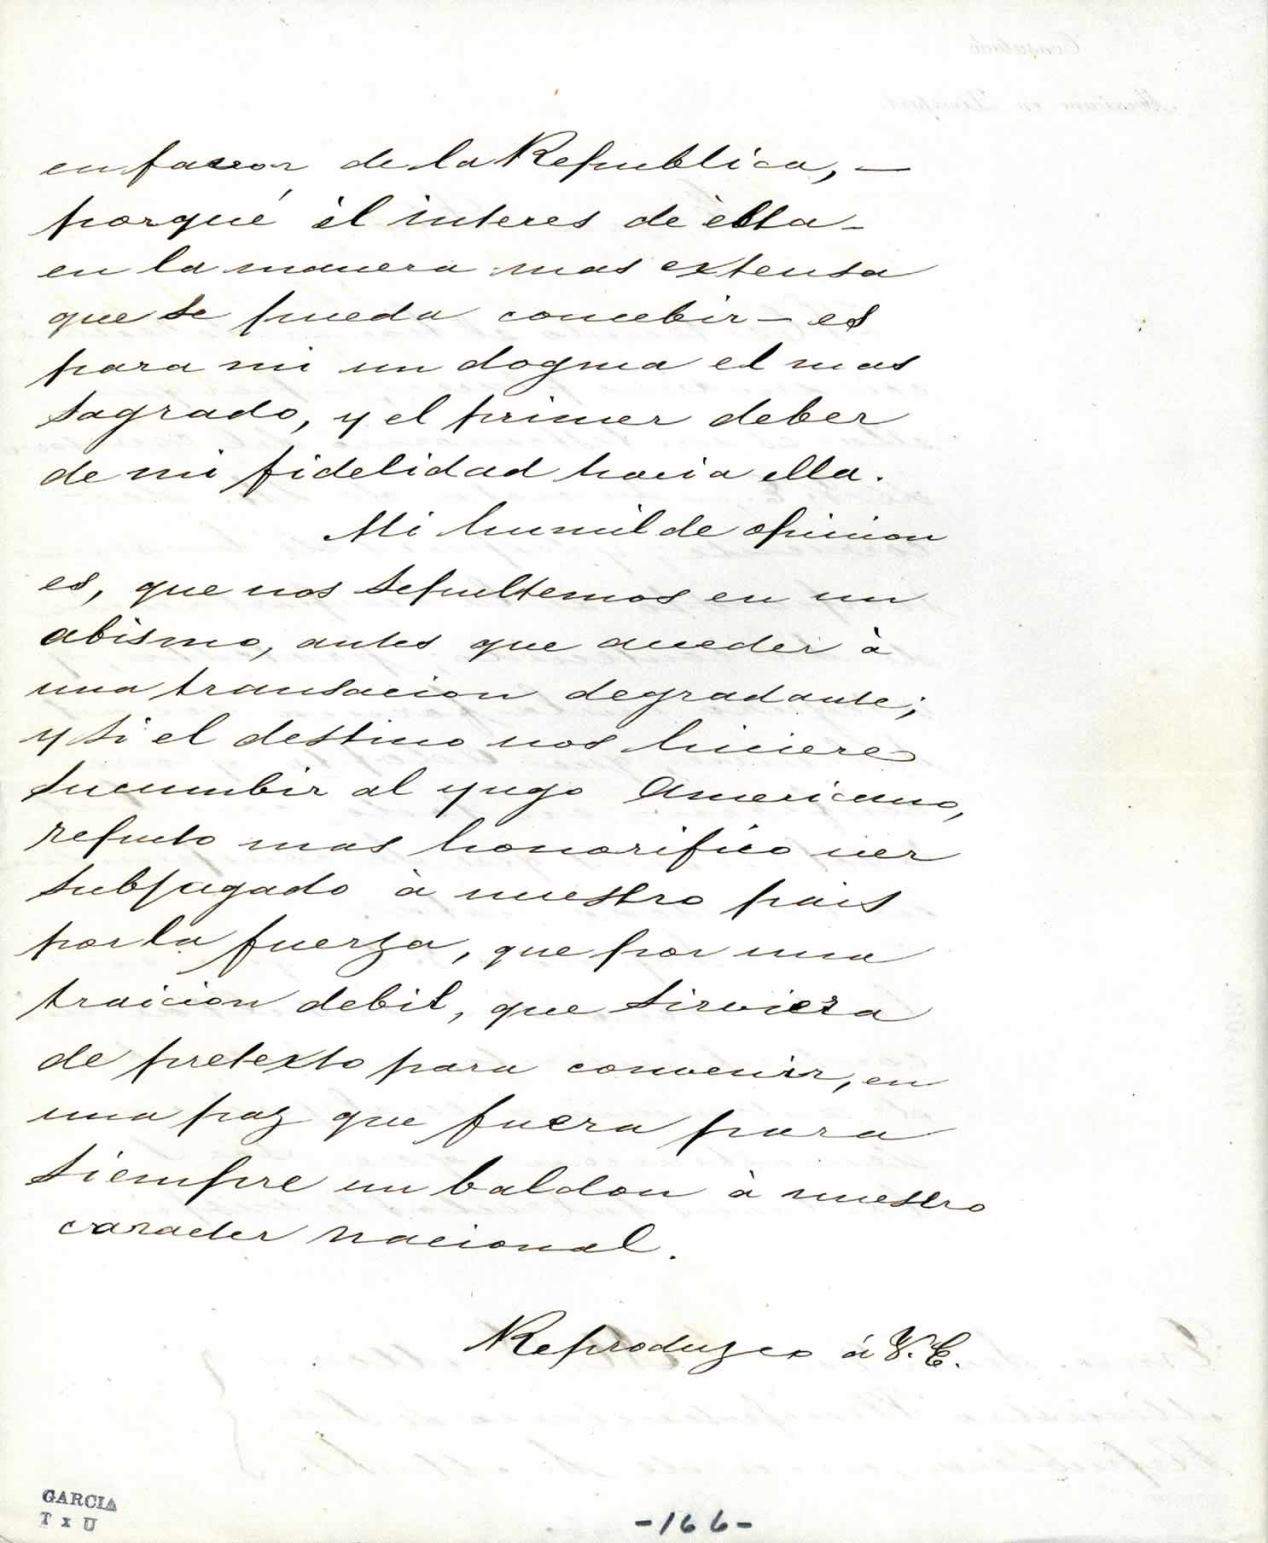 en favor de la Republica, —
porqué él interes de èlla —
en la manera mas extensa
que se pueda concebir — es
para mi un dogma el mas
sagrado, y el primer deber
de mi fidelidad hacia ella.
Mi humilde opinion
es, que nos sepultemos en un
abismo, antes que acceder à
una transacion degradante;
y si el destino nos hiciere
sucumbir al yugo Americano,
reputo mas honorifico ver
subjugado à nuestro pais
por la fuerza, que por una
traicion debil, que sirviera
de pretexto para convenir, en
una paz que fuera para
siempre un baldon à nuestro
caracter nacional.
Reproduzco á V. E.
GARCIA
T x U
-166-